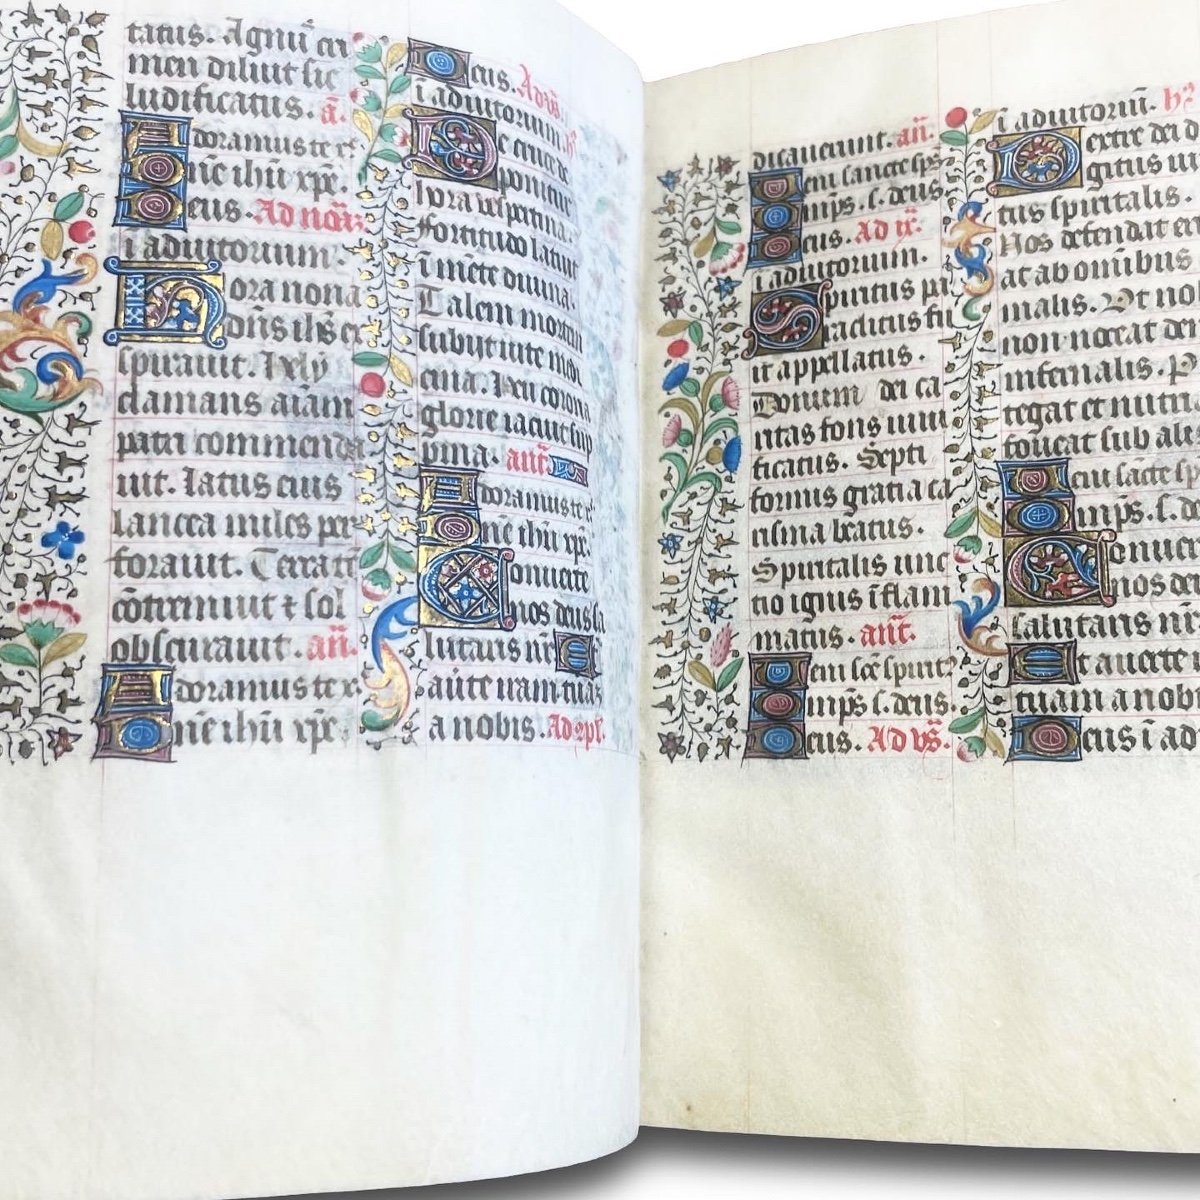 tatus. Agnū cri
men diluit sic
ludificatus. a̅.
Adoramus te x̄
Dn̄e ih̄u xp̄e.
Deus. Ad nonā
ī adiutorium.
Hora nona
dn̄s ih̄s ex
spirauit. hely
clamans aīam
patri commenda
uit. Latus eius
lancea miles per
forauit. Terra tē
cōtremuit ⁊ sol
obscurauit. an̄.
Adoramus te x.
Dn̄e ih̄u xp̄e.
Deus. Ad vs̄.
ī adiutorium. h̄
De cruce de
ponitur
hora vespertina.
fortitudo latuit
ī mēte diuina.
Talem mortem
subiit uite medi
cina. heu corona
glorie iacuit sup
pina. ant̄.
Adoramus te x̄
Dn̄e ih̄u xp̄e.
Conuerte
nos deus sa
lutaris nr̄. Et
au̅te iram tuā
a nobis. Ad cpl̄.
dicauerunt. an̄.
Veni sancte sp̄s
Emp̄s. s. deus
Deus. Ad ix̄.
ī adiutorium.
Spiritus pa
raclitus fu
it appellatus.
Donum dei ca
ritas fons uiui
ficatus. Septi
formis gratia ca
risma beatus.
Spiritalis unc
tio ignis īflam
matus. ant̄.
Veni sc̄e spirit̄
Emp̄s s. deus.
Deus. Ad vs̄.
ī adiutoriū. h?
Dextre dei d
gitus ui
tus spiritalis.
Nos defendat eri
at ab omnibus
malis. Vt nob
non noceat de
infernalis. P
tegat et nutri
foueat sub ale
Veni sācte sp
Emp̄s. s. de
Conuer
nos de
salutaris nr̄
Et auerte i
tuam a nobi
Deus ī ad